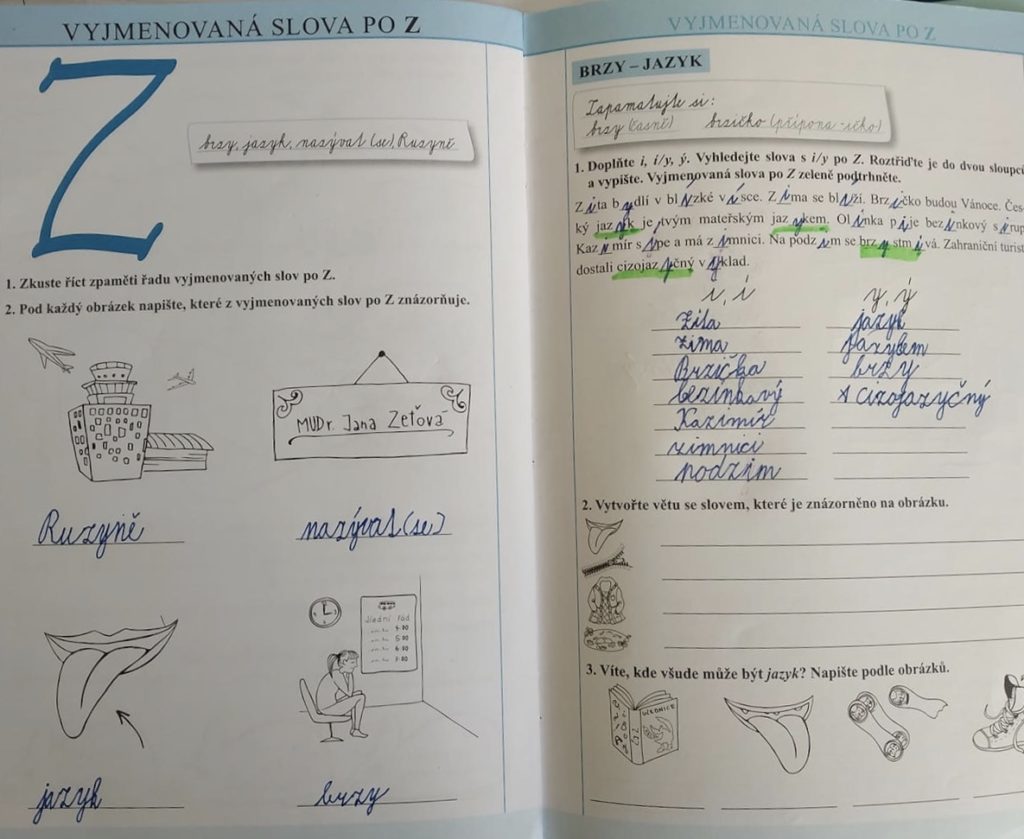 VYJMENOVANÁ SLOVA PO Z
Z
brzy, jazyk, nazývat (se), Ruzyně
1. Zkuste říct zpaměti řadu vyjmenovaných slov po Z.
2. Pod každý obrázek napište, které z vyjmenovaných slov po Z znázorňuje.
MUDr. Jana Zeťová
Ruzyně
nazývat (se)
Jízdní řád
4:00
5:00
6:00
7:00
jazyk
brzy
VYJMENOVANÁ SLOVA PO Z
BRZY – JAZYK
Zapamatujte si:
brzy (časně) brzičko (přípona -ičko)
1. Doplňte i, í/y, ý. Vyhledejte slova s i/y po Z. Roztřiďte je do dvou sloupců
a vypište. Vyjmenovaná slova po Z zeleně podtrhněte.
Zita bydlí v blízké vísce. Zima se blíží. Brzičko budou Vánoce. Čes-
ký jazyk je tvým mateřským jazykem. Olinka pije bezinkový sirup.
Kazimír sípe a má zimnici. Na podzim se brzy stmívá. Zahraniční turisté
dostali cizojazyčný výklad.
i, í y, ý
Zita jazyk
zima jazykem
Brzička brzy
bezinkový cizojazyčný
Kazimír
zimnici
podzim
2. Vytvořte větu se slovem, které je znázorněno na obrázku.
3. Víte, kde všude může být jazyk? Napište podle obrázků.
UČEBNICE